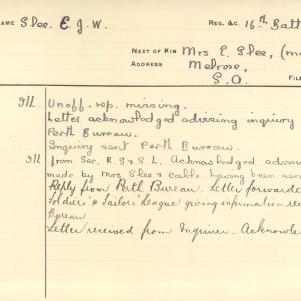 NAME Slee. E. J. W. REG. &C. 16th Batt
NEXT OF KIN Mrs E. Slee, (mo
ADDRESS Melrose,
S.A. FILE
Unoff. rep. missing.
Letter acknowledged advising inquiry
Perth Bureau.
Inquiry sent Perth Bureau.
from Sec. R.S & S.L. Acknowledged advis
made by Mrs Slee & cable having been sen
Reply from Perth Bureau. Letter forwarde
Soldiers' & Sailors' League giving information rec
Bureau
Letter received from Inquirer. Acknowle